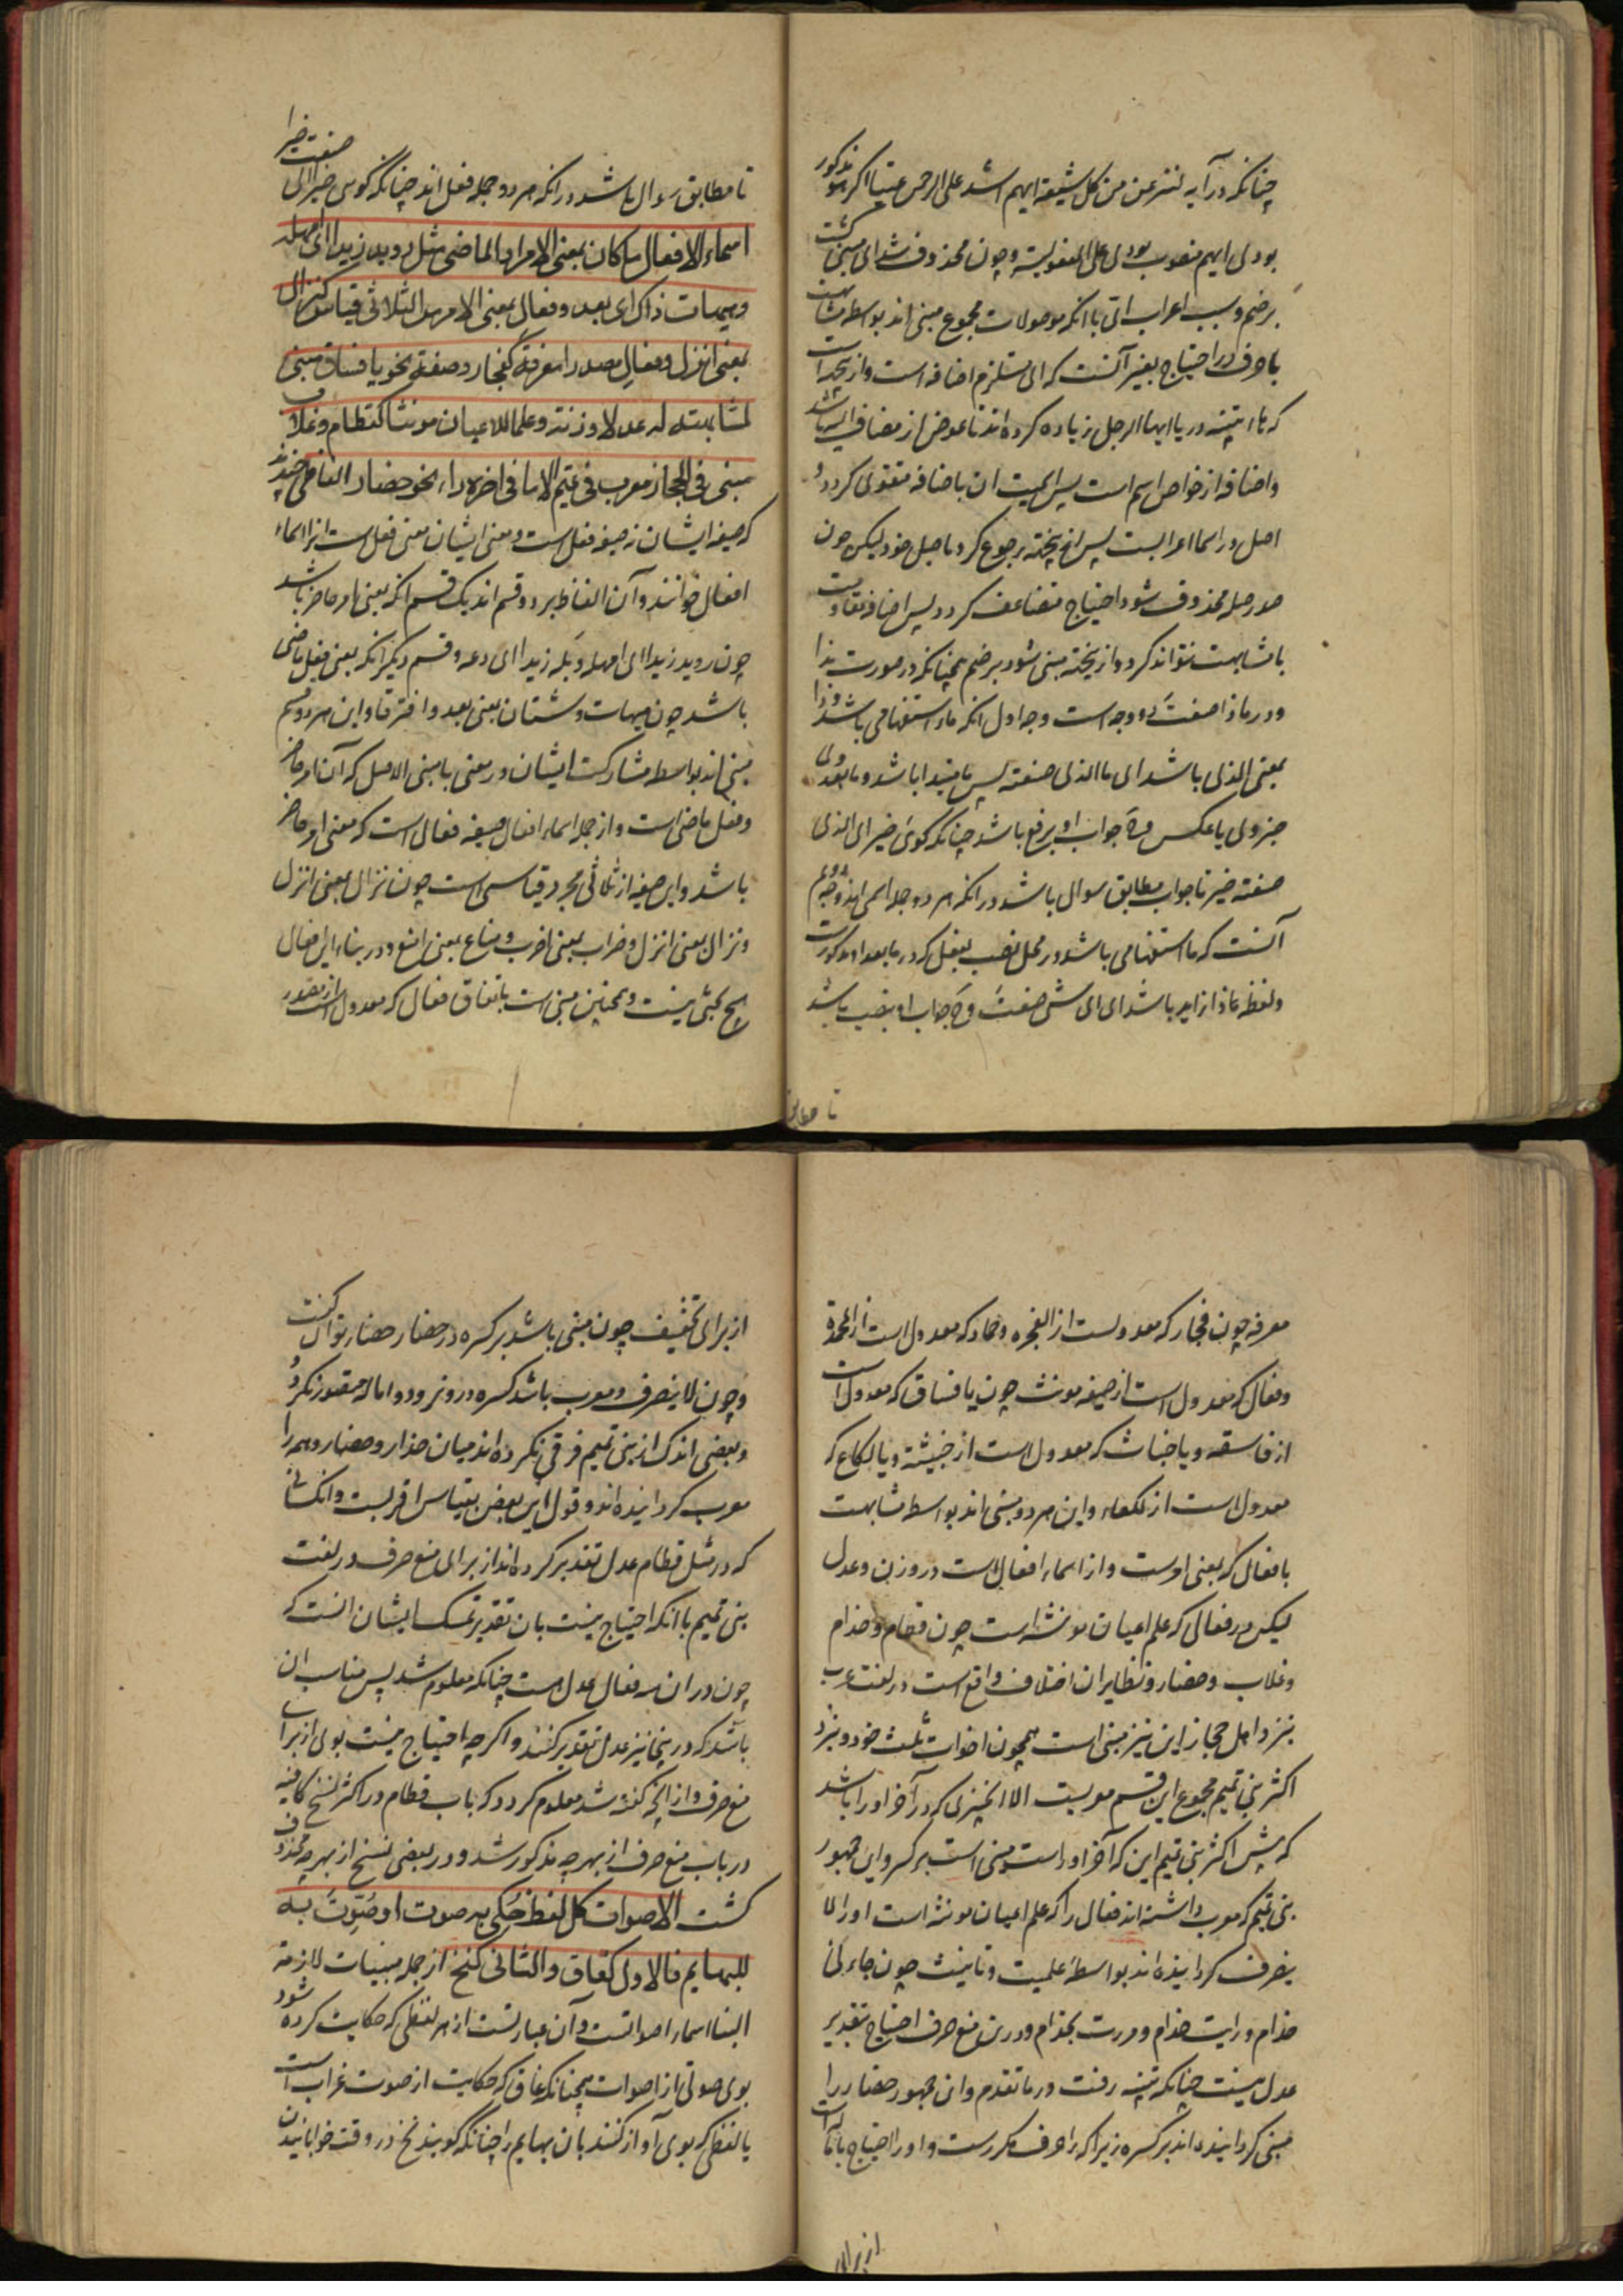 چنانکه در آیه لننزعن من کل شیعة ایهم اشد علی الرحمن عتیا اکر مذکور
بودی ایهم منصوب بودی علی المفعولیة و چون محذوف شد ای مبنی کشت
بر ضم و سبب اعراب ای با آنکه موصولات مجموع مبنی اند بواسطه مشابهت
با حرف در احتیاج بغیر آنست که ای مستلزم اضافه است و از ینجهت است
که تا تنبیه در یا ایها الرجل زیاده کرده اند تا عوض از مضاف الیه باشد
و اضافه از خواص اسم است پس اسمیت ان باضافه متقوی کردد و
اصل در اسما اعرابست پس از ینجهة رجوع کرد باصل خود لیکن چون
صدر صله محذوف شود احتیاج متضاعف کردد پس اضافه مقاومت
با مشابهت نتواند کرد و از ینجهة مبنی شود بر ضم همچنانکه در صورت ندا
و در ماذا صنعت دو وجه است وجه اول آنکه ماء استفهامی باشد و ذا
بمعنی الذی باشد ای ما الذی صنعته پس ما مبتدا باشد و ما بعد وی
خبر وی یا عکس و ح جواب او برفع باشد چنانکه کوئی خیر ای الذی
صنعته خیر تا جواب مطابق سوال باشد در انکه هر دو جمله اسمی اند و وجه دویم
آنست که ما استفهامی باشد در محل نصب بفعل که در ما بعد او مذکورست
و لفظ ذا زاید باشد ای ای شئ صنعت و ح جواب او بنصب باشد
تا مطابق
تا مطابق سوال باشد در انکه هر دو جمله فعل اند چنانکه کوئی خیرا ای صنعت خیرا
اسماء الافعال ما کان بمعنی الامر او الماضی مثل روید زیدا ای امهله
و هیهات ذاک ای بعد و فعال بمعنی الامر من الثلاثی قیاس کنزال
بمعنی انزل و فعال مصدرا معرفة کفجار و صفة نحو یا فساق مبنی
لمشابهته له عدلا و زنة و علما للاعیان مونثا کقطام و غلاب
مبنی فی الحجاز معرب فی تمیم الا ما فی اخره راء نحو حضار الفاظی چندند
که صیغه ایشان نه صیغه فعل است و معنی ایشان معنی فعل است انرا اسماء
افعال خوانند و آن الفاظ بر دو قسم اند یک قسم انکه بمعنی امر حاضر باشد
چون روید زیدا ای امهله و بله زیدا ای دعه و قسم دیکر انکه بمعنی فعل ماضی
باشد چون هیهات و شتان بمعنی بعد و افترقا و این هر دو قسم
مبنی اند بواسطه مشارکت ایشان در معنی با مبنی الاصل که آن امر حاضر
و فعل ماضی است و از جمله اسماء افعال صیغه فعال است که معنی امر حاضر
باشد و این صیغه از ثلاثی مجرد قیاسی است چون نزال بمعنی انزل
و نزال بمعنی انزل و ضراب بمعنی اضرب و مناع بمعنی امنع و در بناء این افعال
هیچ بحثی نیست و همچنین مبنی است باتفاق فعال که معدول است از مصدر
معرفه چون فجار که معدولست از الفجره و حماد که معدول است از المحمدة
و فعال که معدول است از صیغه مونث چون یا فساق که معدول است
از فاسقه و یا خباث که معدول است از خبیثة و یا لکاع که
معدول است از لکعاء و این هر دو مبنی اند بواسطه مشابهت
با فعال که بمعنی امرست و از اسماء افعال است در وزن و عدل
لیکن در فعالی که علم اعیان مونثه است چون قطام و حذام
و غلاب و حضار و نظایر ان اختلاف واقع است در لغت عرب
بنزد اهل حجاز این نیز مبنی است همچون اخوات ثلث خود و بنزد
اکثر بنی تمیم مجموع این قسم معربست الا انچیزی که در آخر او را باشد
که پیش اکثر بنی تمیم این که آخر او راست مبنی است بر کسر و این جمهور
بنی تمیم که معرب داشته اند فعال را که علم اعیان مونثه است او را لا
ینصرف کردانیده اند بواسطه علمیت و تانیث چون جاءنی
حذام و رایت حذام و مررت بحذام و در ین منع صرف احتیاج بتقدیر
عدل نیست چنانکه تنبیه رفت در ما تقدم و ان جمهور حضار را
مبنی کردانیده اند بر کسره زیرا که را حرف مکررست و او را احتیاج باماله است
از برای
از برای تخفیف چون مبنی باشد بر کسره در حضار حضار توان کفت
و چون لا ینصرف و معرب باشد کسره در و نرود و اماله متصور نکردد
و بعضی اندک از بنی تمیم فرقی نکرده اند میان حذار و حضار و همه را
معرب کردانیده اند و قول این بعض بقیاس اقربست و انکسانی
که در مثل قطام عدل تقدیر کرده اند از برای منع صرف در لغت
بنی تمیم با آنکه احتیاج نیست بان تقدیر تمسک ایشان انست که
چون در ان سه فعال عدل است چنانکه معلوم شد پس مناسب ان
باشد که در ینجا نیز عدل تقدیر کنند و اکرچه احتیاج نیست بوی از برای
منع صرف و از انچه کفته شد معلوم کردد که باب قطام در اکثر نسخ کافیه
در باب منع صرف از بهر چه مذکور شد و در بعضی نسخ از بهر چه محذوف
کشت الاصوات کل لفظ حکی به صوت او صوت به
للبهایم فالاول کغاق و الثانی کنخ از جمله مبنیات لازمة
البنا اسماء اصواتست و آن عبارتست از هر لفظی که حکایت کرده شود
بوی صوتی از اصوات همچنانکه غاق که حکایت از صوت غراب است
یا لفظی که بوی آواز کنند بان بهایم را چنانکه کویند نخ در وقت خوابانیدن